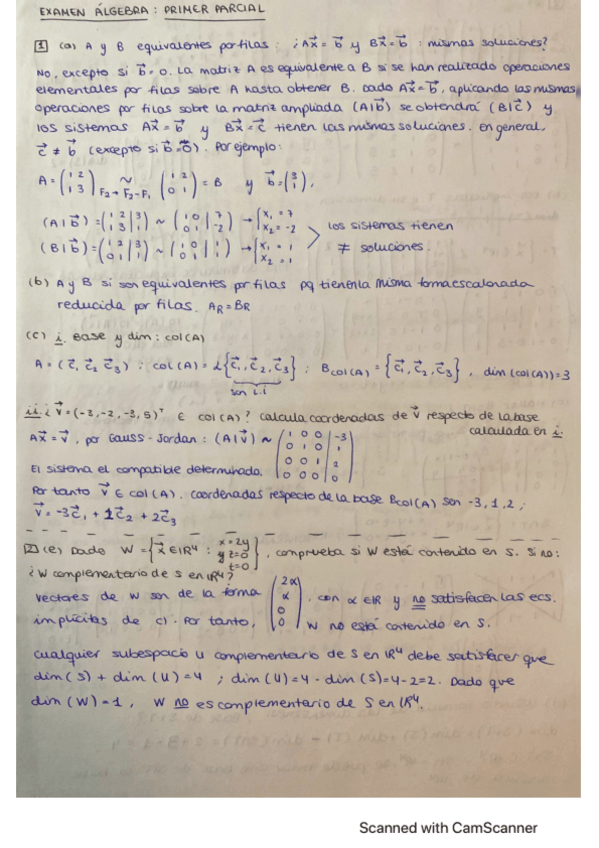 EXAMEN ÁLGEBRA: PRIMER PARCIAL
1 (a) A y B equivalentes por filas: ¿Ax⃗ = b⃗ y Bx⃗ = b⃗ : mismas soluciones?
No, excepto si b⃗ = 0. La matriz A es equivalente a B si se han realizado operaciones
elementales por filas sobre A hasta obtener B. Dado Ax⃗ = b⃗, aplicando las mismas
operaciones por filas sobre la matriz ampliada (A|b⃗) se obtendrá (B|c⃗) y
los sistemas Ax⃗ = b⃗ y Bx⃗ = c⃗ tienen las mismas soluciones. En general,
c⃗ ≠ b⃗ (excepto si b⃗ = 0⃗). Por ejemplo:
A = (1 2; 1 3) ~ F2→F2-F1 (1 2; 0 1) = B y b⃗ = (3; 1),
(A|b⃗) = (1 2 | 3; 1 3 | 1) ~ (1 0 | 7; 0 1 | -2) → {x₁ = 7; x₂ = -2
(B|b⃗) = (1 2 | 3; 0 1 | 1) ~ (1 0 | 1; 0 1 | 1) → {x₁ = 1; x₂ = 1
los sistemas tienen
≠ soluciones.
(b) A y B si son equivalentes por filas pq tienen la misma forma escalonada
reducida por filas. A_R = B_R
(c) i. Base y dim: col(A)
A = (c⃗₁ c⃗₂ c⃗₃) ; col(A) = L{c⃗₁, c⃗₂, c⃗₃} ; B_col(A) = {c⃗₁, c⃗₂, c⃗₃}, dim(col(A)) = 3
son l.i
ii. ¿v⃗ = (-3, -2, -3, 5)ᵀ ∈ col(A)? calcula coordenadas de v⃗ respecto de la base
calculada en i.
Ax⃗ = v⃗, por Gauss-Jordan: (A|v⃗) ~ (1 0 0 | -3; 0 1 0 | 1; 0 0 1 | 2; 0 0 0 | 0)
El sistema el compatible determinado.
Por tanto v⃗ ∈ col(A). Coordenadas respecto de la base B_col(A) son -3, 1, 2;
v⃗ = -3c⃗₁ + 1c⃗₂ + 2c⃗₃
2 (e) Dado W = {x⃗ ∈ ℝ⁴ : x = 2y; z = 0; t = 0}, comprueba si W está contenido en S. Si no:
¿W complementario de S en ℝ⁴?
vectores de W son de la forma (2α; α; 0; 0), con α ∈ ℝ y no satisfacen las ecs.
implícitas de c). Por tanto, W no está contenido en S.
Cualquier subespacio U complementario de S en ℝ⁴ debe satisfacer que
dim(S) + dim(U) = 4 ; dim(U) = 4 - dim(S) = 4 - 2 = 2. Dado que
dim(W) = 1, W no es complementario de S en ℝ⁴.
Scanned with CamScanner